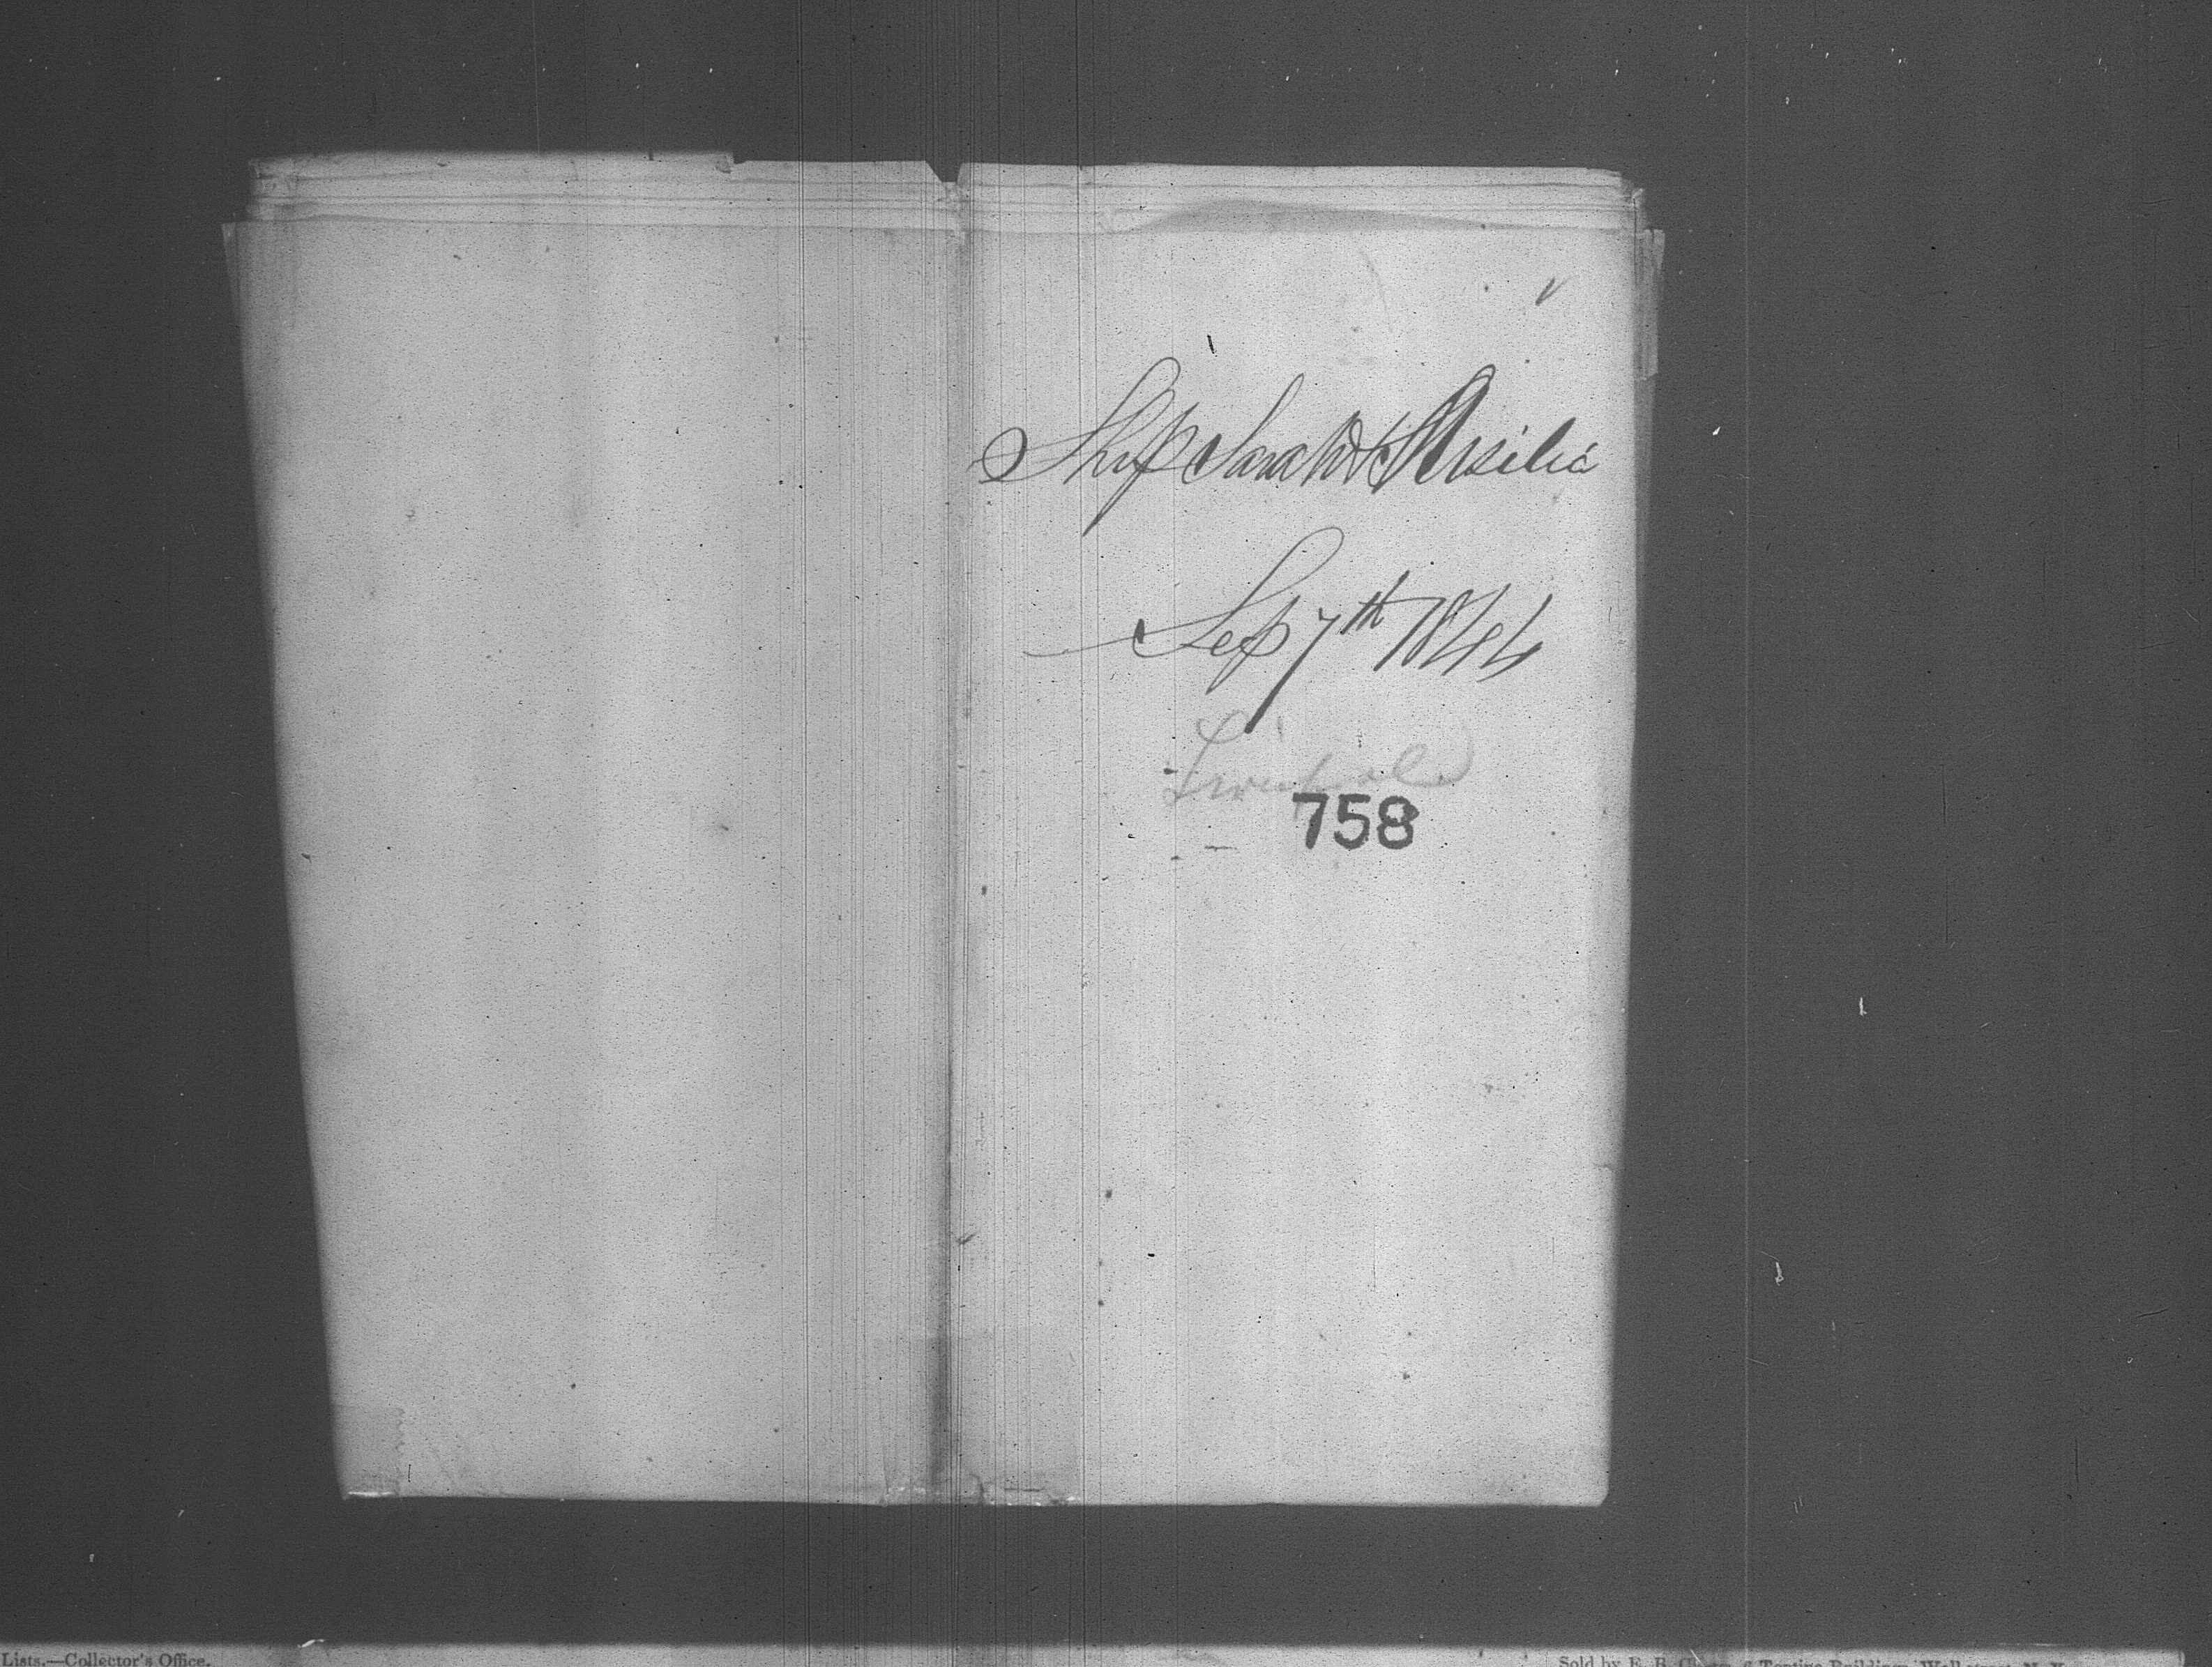 Ship Sarah & Arsilia
Sep 7th 1844
Liverpool
758
Lists.—Collector's Office.
Sold by E. B. Tontine Buildings, Wall street, N. Y.